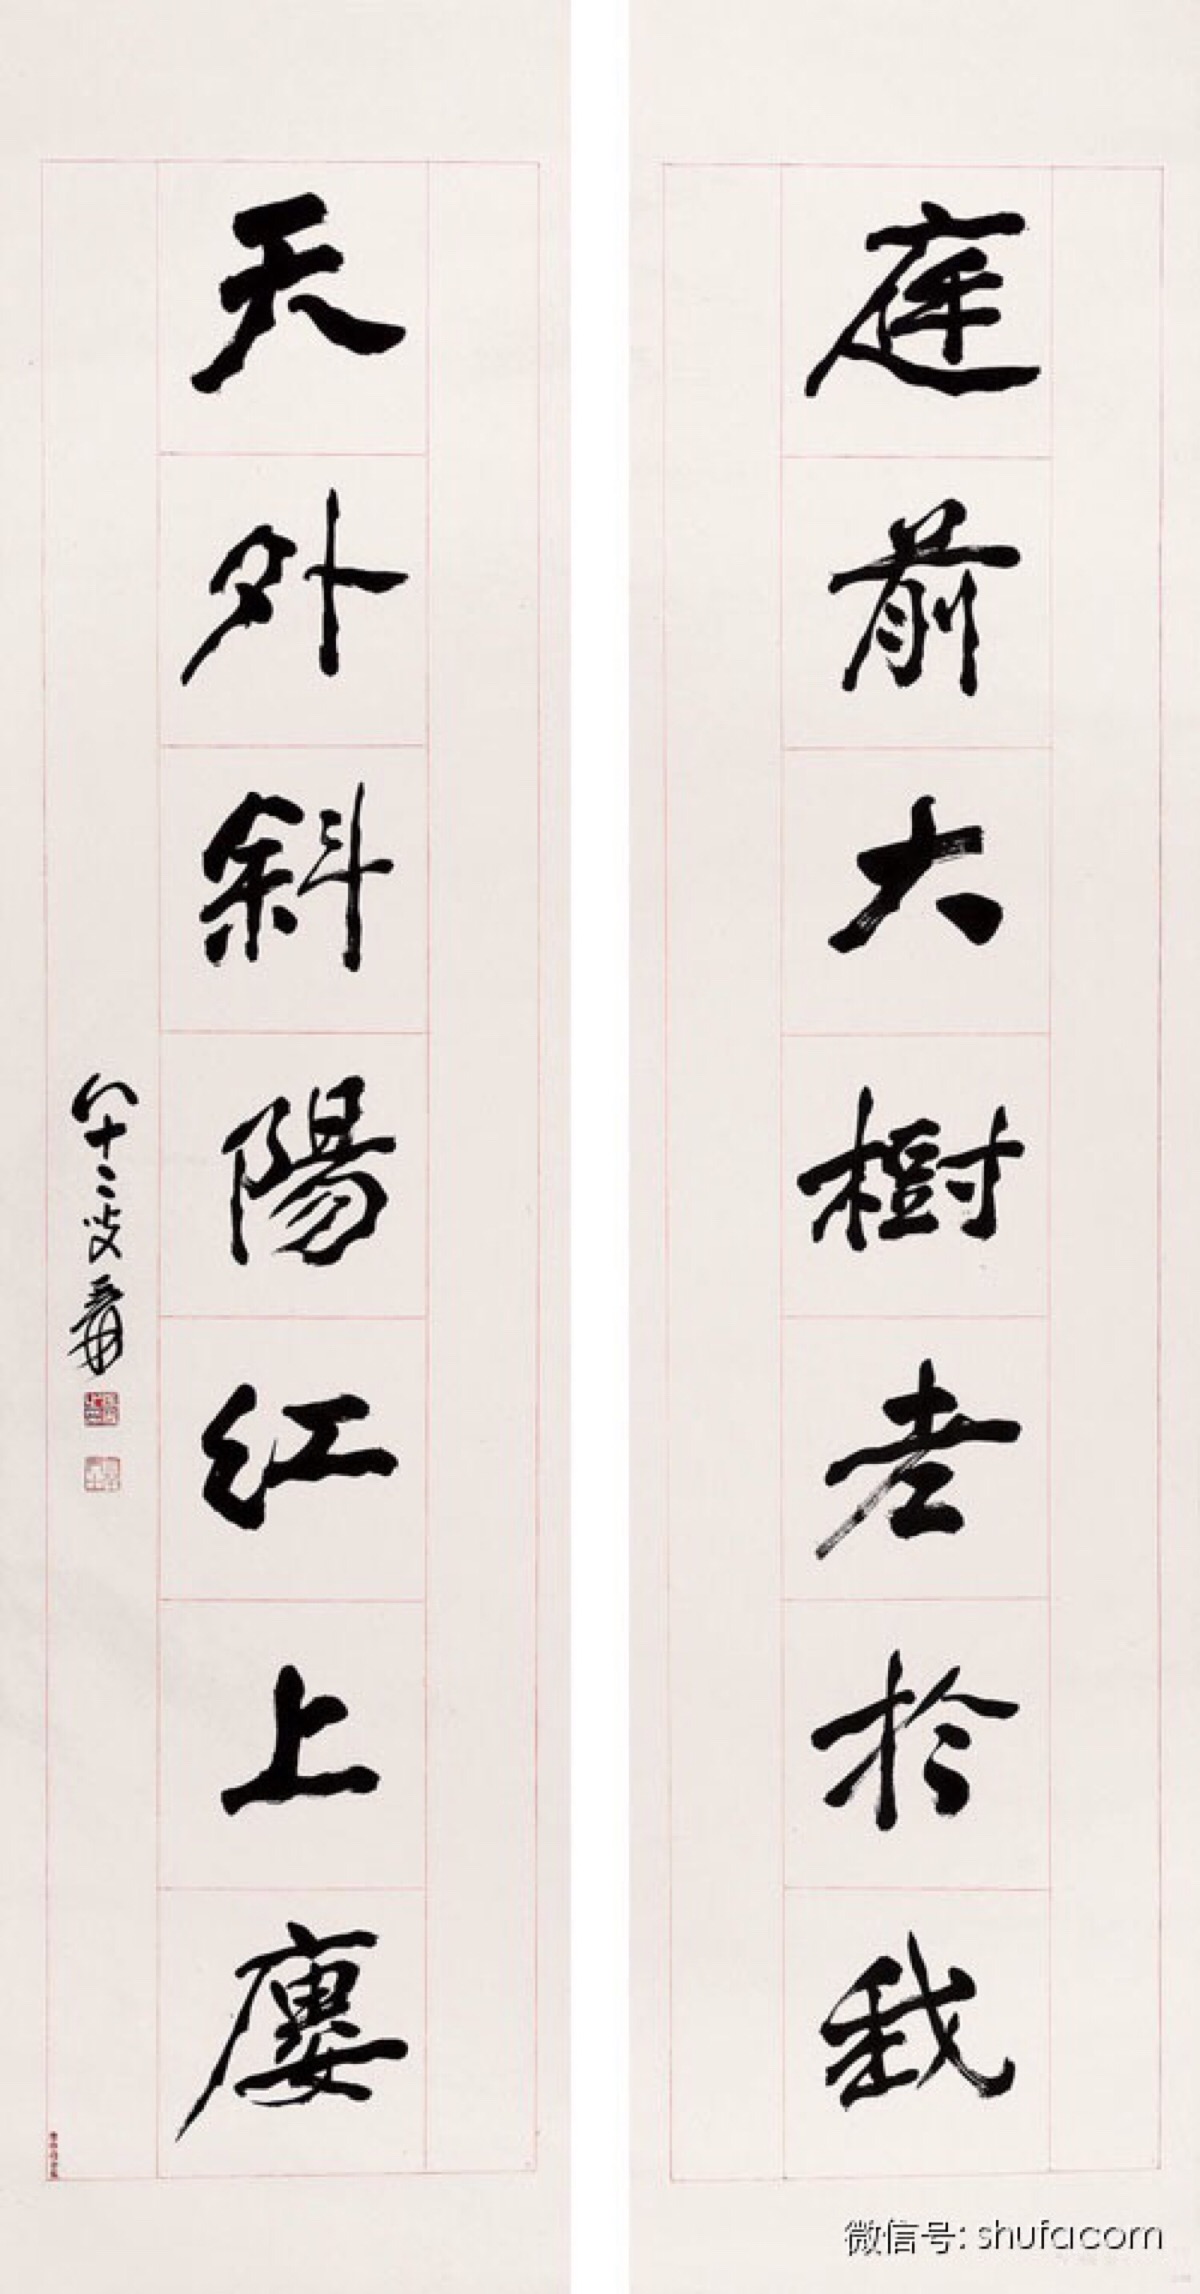 庭前大樹老於我
天外斜陽紅上廔
八十二叟爰
微信号: shufacom